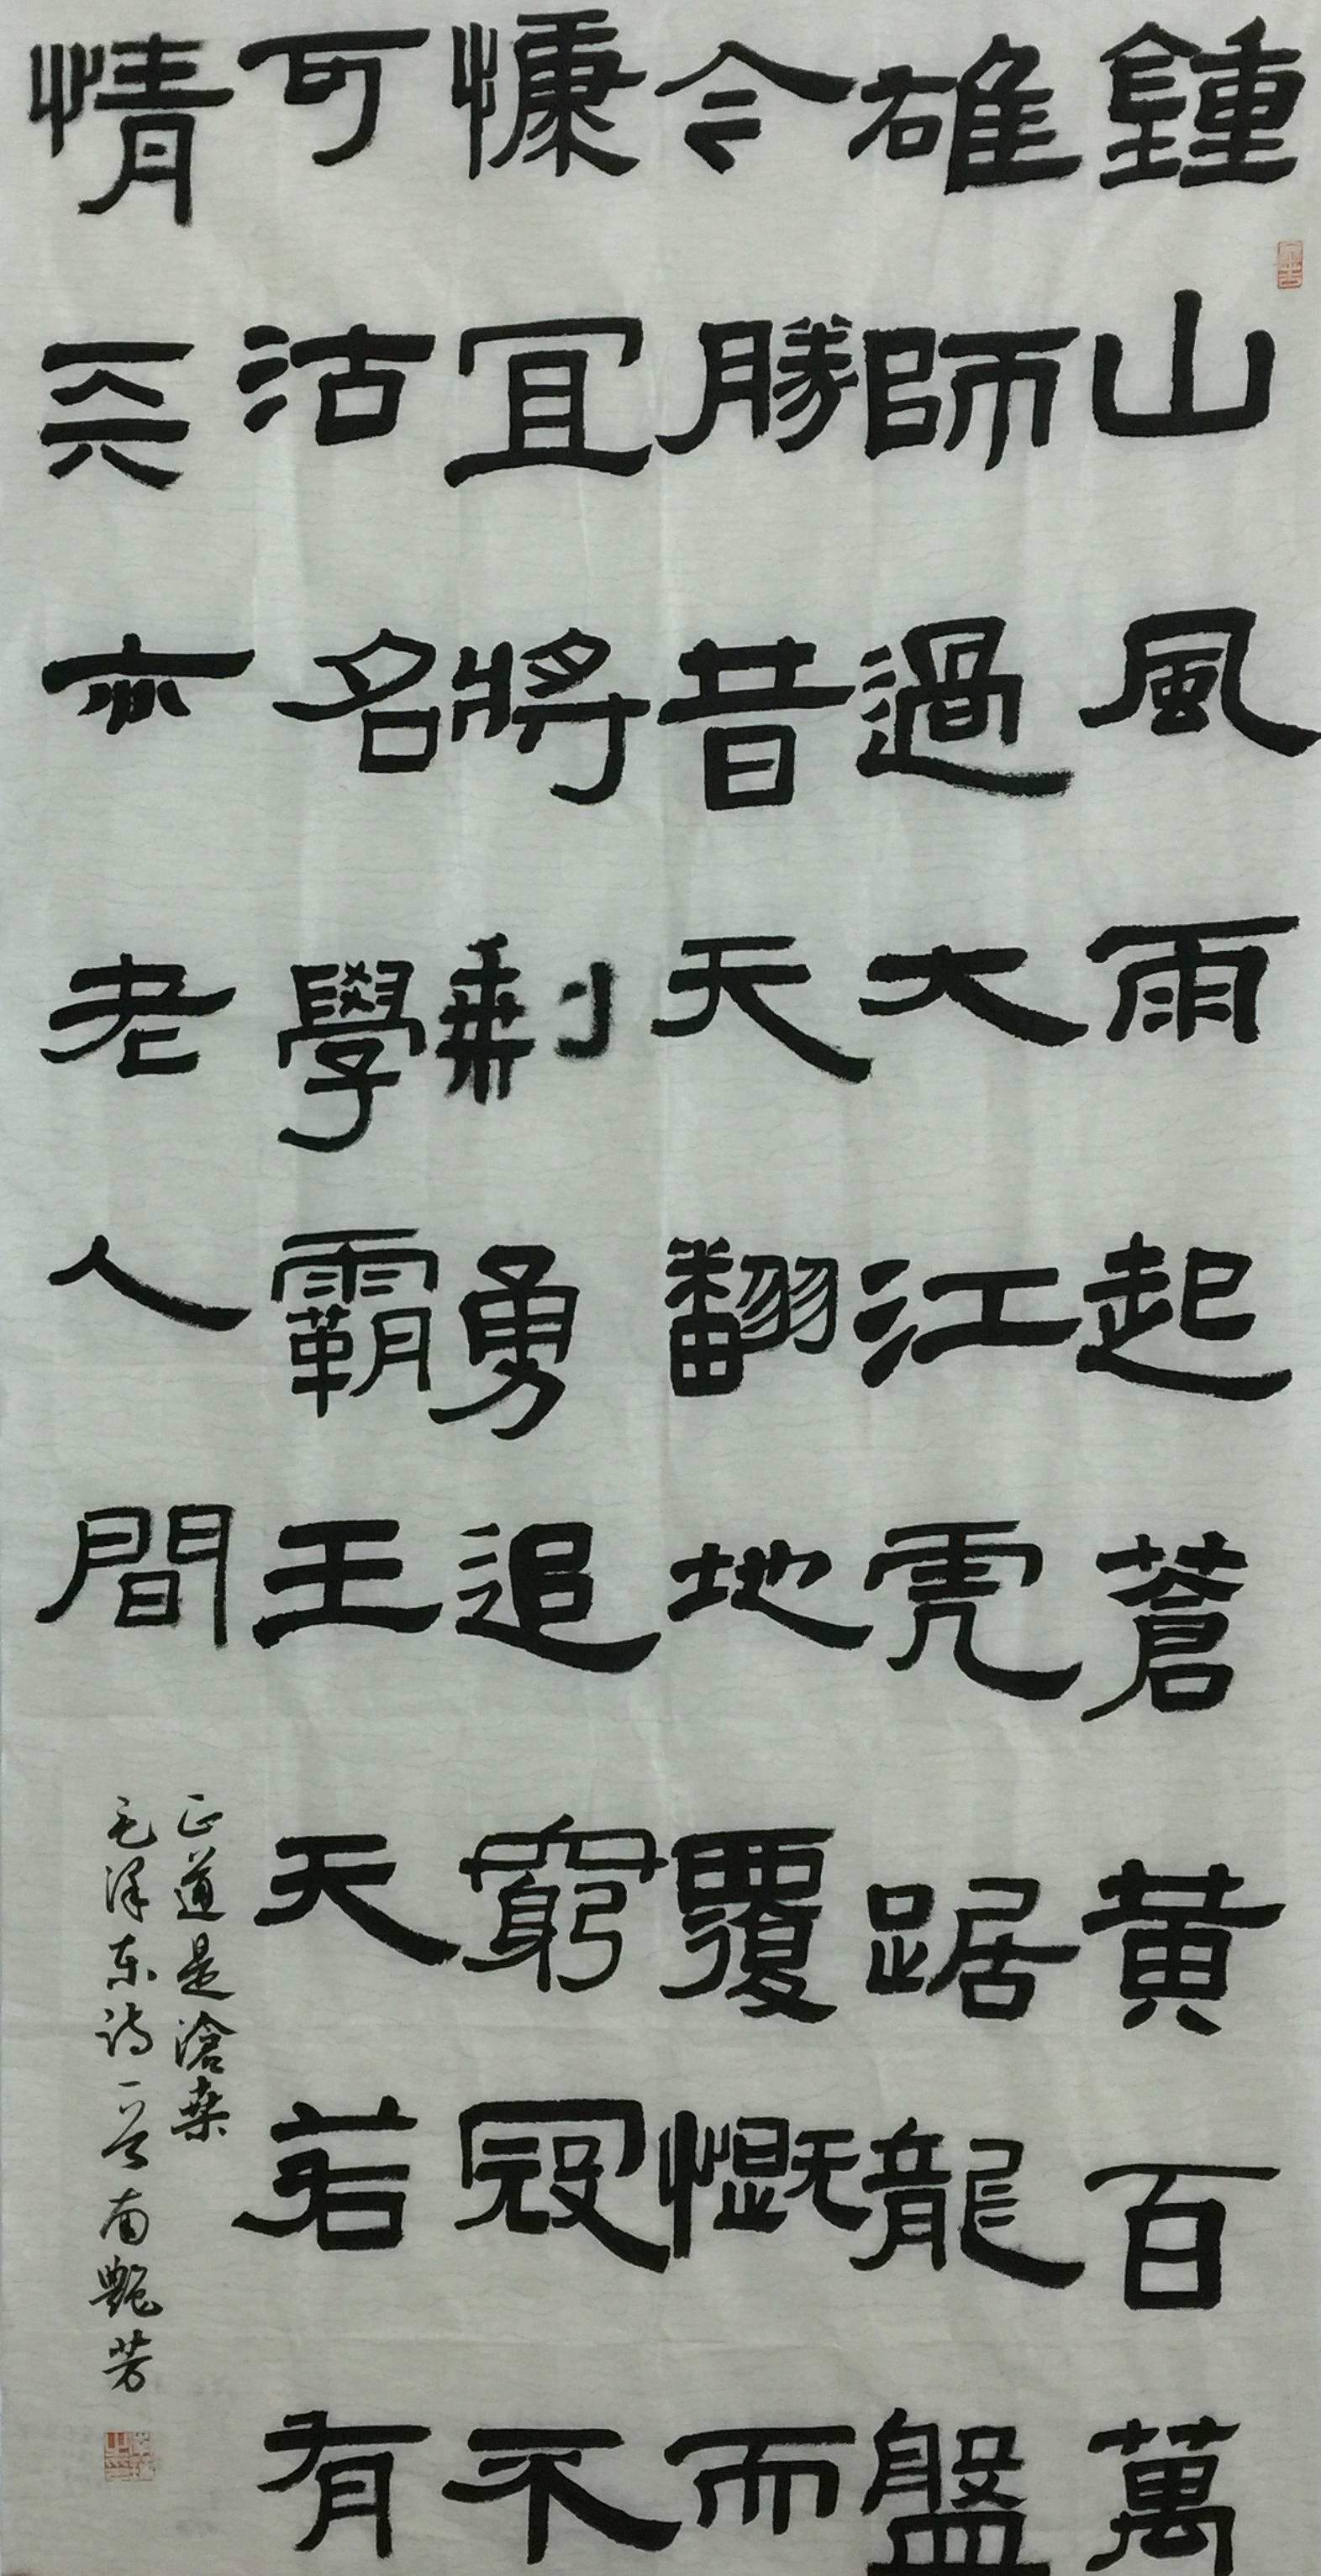 鍾山風雨起蒼黃百萬
雄師過大江虎踞龍盤
今勝昔天翻地覆慨而
慷宜將剩勇追窮寇不
可沽名學霸王天若有
情天亦老人間
正道是滄桑
毛泽东詩一首南艷芳